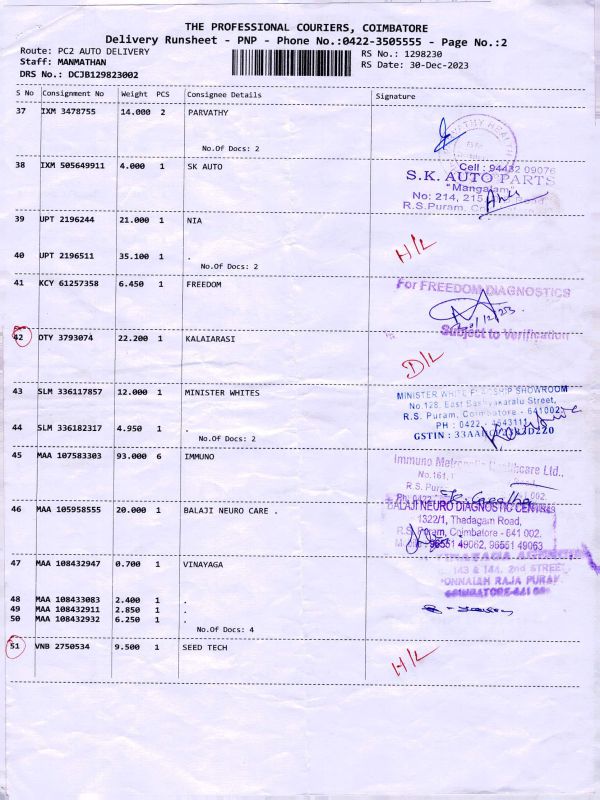 THE PROFESSIONAL COURIERS, COIMBATORE
Delivery Runsheet - PNP - Phone No.:0422-3505555 - Page No.:2
Route: PC2 AUTO DELIVERY
RS No.: 1298230
Staff: MANMATHAN
RS Date: 30-Dec-2023
DRS No.: DCJB129823002
S No Consignment No Weight PCS Consignee Details Signature
37 IXM 3478755 14.000 2 PARVATHY
No.Of Docs: 2
38 IXM 505649911 4.000 1 SK AUTO
Cell : 94432 09076
S.K. AUTO PARTS
"Mangalam"
No: 214, 215
R.S.Puram,
39 UPT 2196244 21.000 1 NIA
H/L
40 UPT 2196511 35.100 1 .
No.Of Docs: 2
41 KCY 61257358 6.450 1 FREEDOM
For FREEDOM DIAGNOSTICS
Subject to Verification
42 DTY 3793074 22.200 1 KALAIARASI
D/L
43 SLM 336117857 12.000 1 MINISTER WHITES
SHOWROOM
No.128, East Street,
R.S. Puram, Coimbatore - 641002
PH : 0422 -
GSTIN :
44 SLM 336182317 4.950 1 .
No.Of Docs: 2
45 MAA 107583303 93.000 6 IMMUNO
Immuno Ltd.,
No.161,
46 MAA 105958555 20.000 1 BALAJI NEURO CARE .
BALAJI NEURO DIAGNOSTIC CENTRE
1322/1, Thadagam Road,
R.S. Puram, Coimbatore - 641 002.
96551 49062, 96551 49063
47 MAA 108432947 0.700 1 VINAYAGA
143 & 144, 2nd STREET
PONNAIAH RAJA PURAM
COIMBATORE-641 001
48 MAA 108433083 2.400 1 .
49 MAA 108432911 2.850 1 .
50 MAA 108432932 6.250 1 .
No.Of Docs: 4
51 VNB 2750534 9.500 1 SEED TECH
H/L